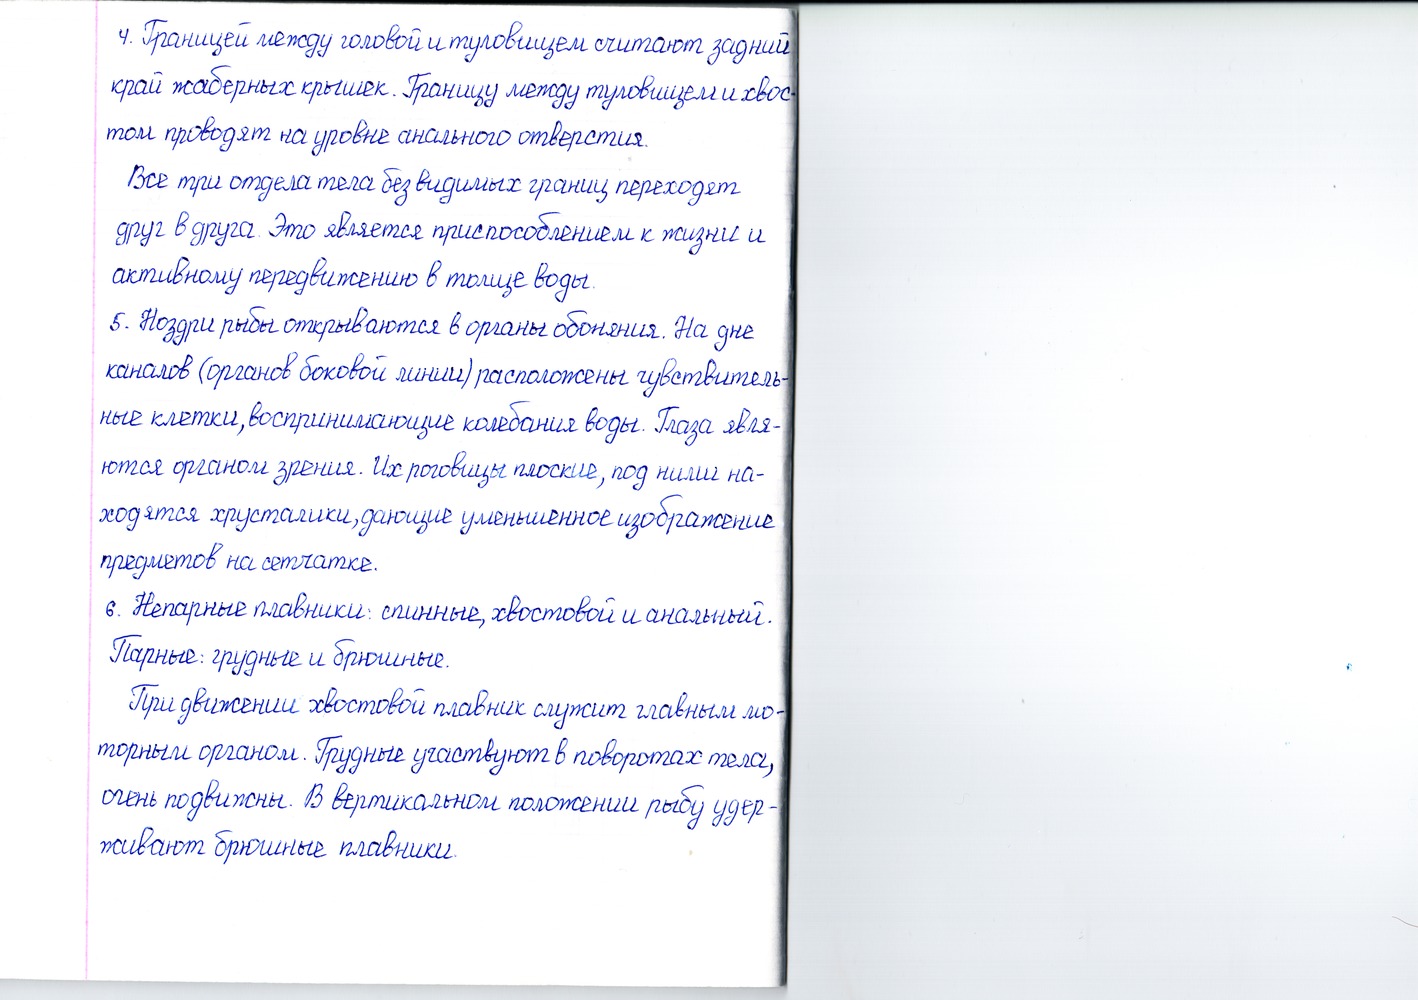 4. Границей между головой и туловищем считают задний
край жаберных крышек. Границу между туловищем и хвос-
том проводят на уровне анального отверстия.
Все три отдела тела без видимых границ переходят
друг в друга. Это является приспособлением к жизни и
активному передвижению в толще воды.
5. Ноздри рыбы открываются в органы обоняния. На дне
каналов (органов боковой линии) расположены чувствитель-
ные клетки, воспринимающие колебания воды. Глаза явля-
ются органом зрения. Их роговицы плоские, под ними на-
ходятся хрусталики, дающие уменьшенное изображение
предметов на сетчатке.
6. Непарные плавники: спинные, хвостовой и анальный.
Парные: грудные и брюшные.
При движении хвостовой плавник служит главным мо-
торным органом. Грудные участвуют в поворотах тела,
очень подвижны. В вертикальном положении рыбу удер-
живают брюшные плавники.